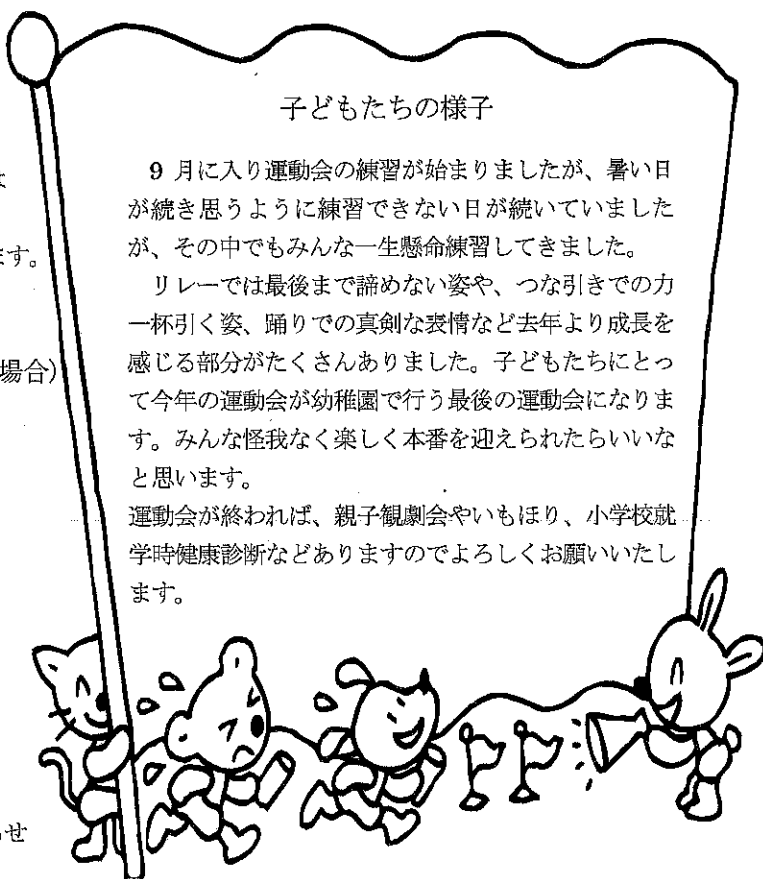 子どもたちの様子
9 月に入り運動会の練習が始まりましたが、暑い日
が続き思うように練習できない日が続いていました
が、その中でもみんな一生懸命練習してきました。
リレーでは最後まで諦めない姿や、つな引きでの力
一杯引く姿、踊りでの真剣な表情など去年より成長を
感じる部分がたくさんありました。子どもたちにとっ
て今年の運動会が幼稚園で行う最後の運動会になりま
す。みんな怪我なく楽しく本番を迎えられたらいいな
と思います。
運動会が終われば、親子観劇会やいもほり、小学校就
学時健康診断などありますのでよろしくお願いいたし
ます。
ます。
場合)
せ